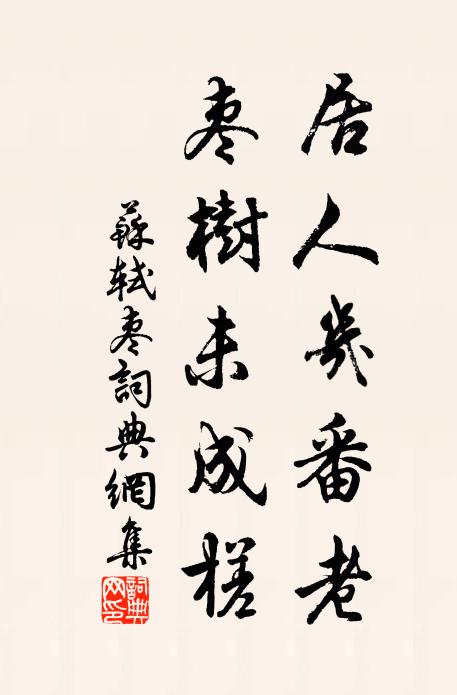 居人幾番老
棗樹未成槎
蘇軾棗詞典網集
詞典網印